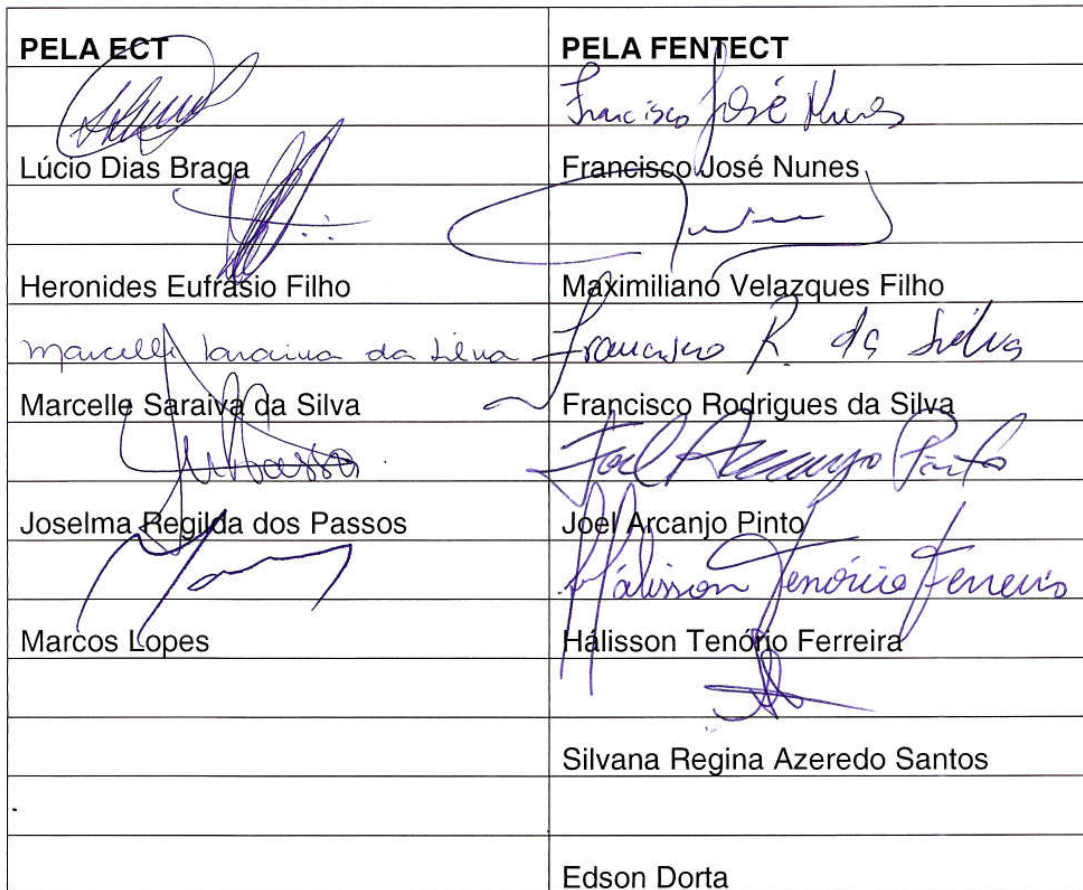 PELA ECT
PELA FENTECT
Francisco José Nunes
Lúcio Dias Braga
Francisco José Nunes
Heronides Eufrásio Filho
Maximiliano Velazques Filho
Marcelle Saraiva da Silva
Francisco R. da Silva
Marcelle Saraiva da Silva
Francisco Rodrigues da Silva
Joel Arcanjo Pinto
Joselma Regilda dos Passos
Joel Arcanjo Pinto
Hálisson Tenório Ferreira
Marcos Lopes
Hálisson Tenório Ferreira
Silvana Regina Azeredo Santos
Edson Dorta